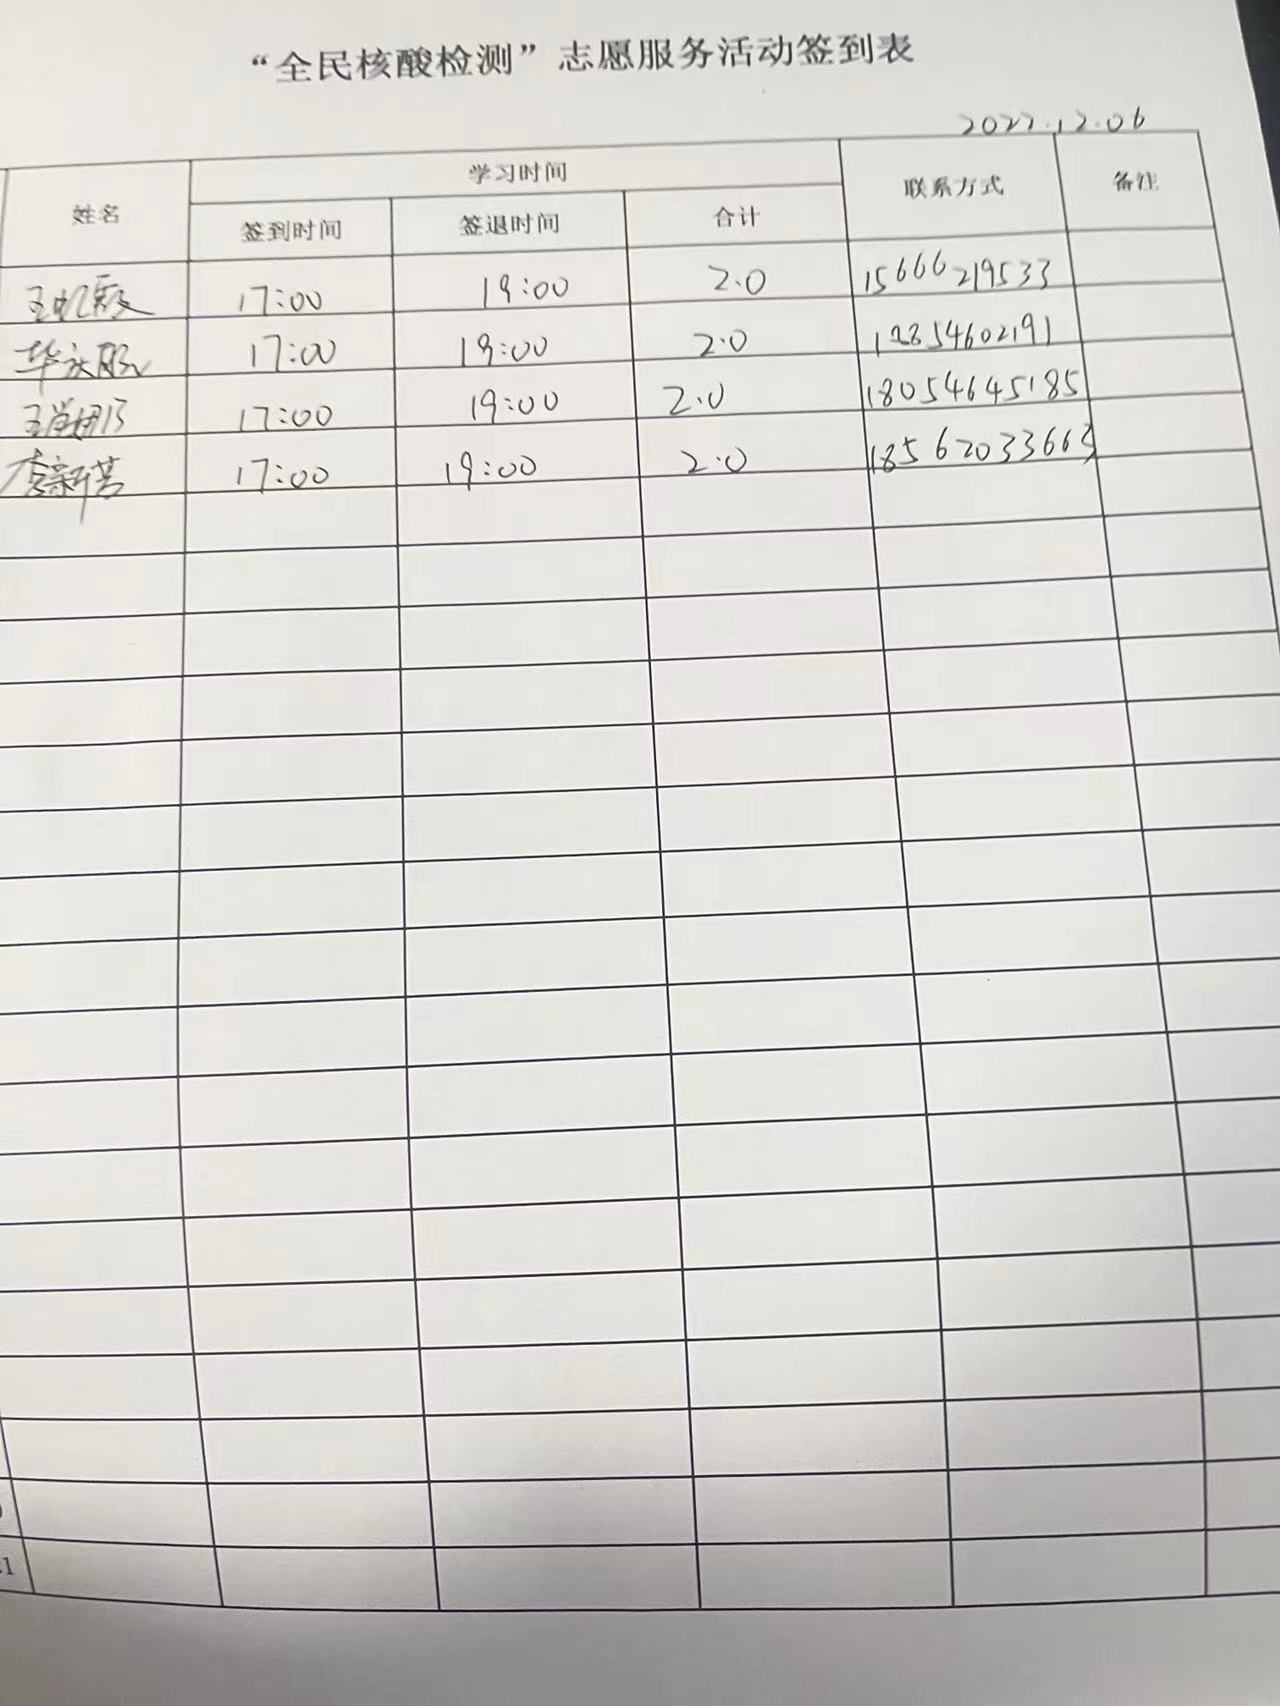 “全民核酸检测”志愿服务活动签到表
2022.12.06
姓名 学习时间 联系方式 备注
签到时间 签退时间 合计
17:00 19:00 2.0 15666219533
17:00 19:00 2.0 12854602191
17:00 19:00 2.0 18054645185
李新苦 17:00 19:00 2.0 18562033663